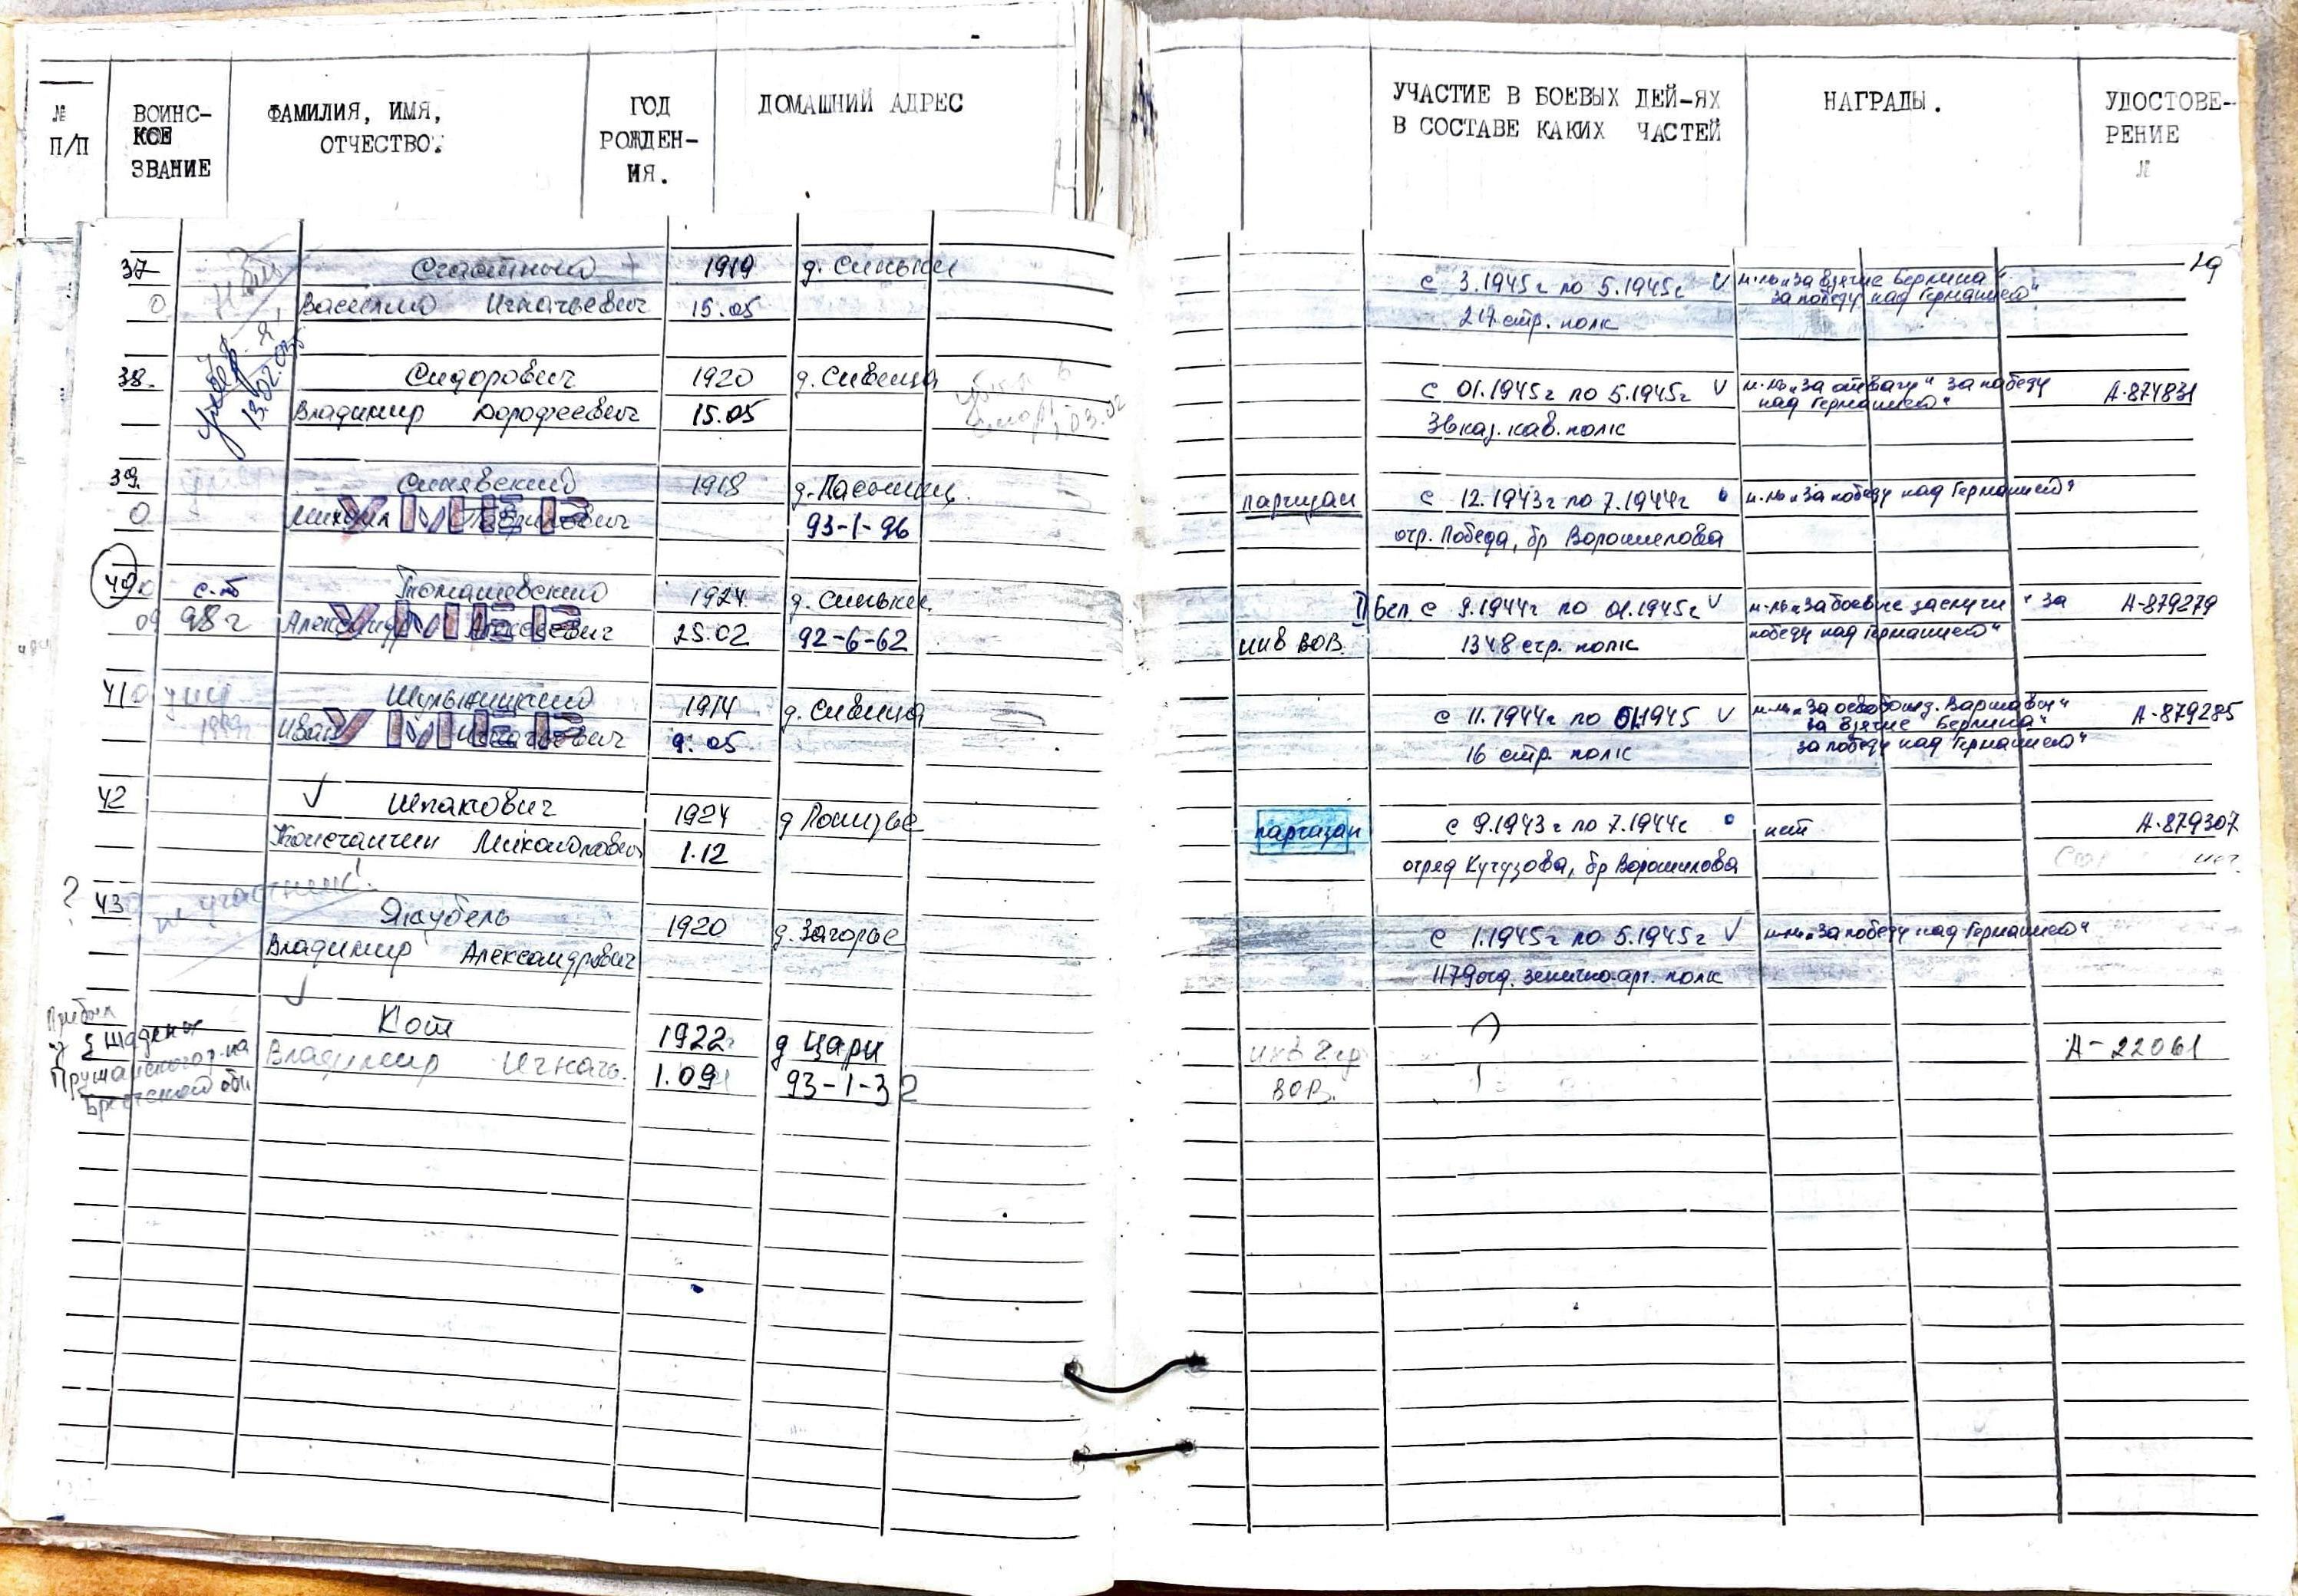 № П/П
ВОИНС-
КОЕ
ЗВАНИЕ
ФАМИЛИЯ, ИМЯ,
ОТЧЕСТВО.
ГОД
РОЖДЕН-
ИЯ.
ДОМАШНИЙ АДРЕС
УЧАСТИЕ В БОЕВЫХ ДЕЙ-ЯХ
В СОСТАВЕ КАКИХ ЧАСТЕЙ
НАГРАДЫ.
УДОСТОВЕ-
РЕНИЕ
№
19
37 1919 д. Синьки
0 Василий Игнатьевич 15.05
с 3.1945г по 5.1945г V м-ль „За взятие Берлина"
за победу над Германией"
217 стр. полк
умер
13.02.03г
38. Сидорович 1920 д. Сивица
Владимир Дорофеевич 15.05
с 01.1945г по 5.1945г V м-ль „За отвагу" за победу
над Германией" А-874831
36 каз. кав. полк
39. Синявский 1918 д. Пасыниц
0 УМЕР Михаил 93-1-96
партизан с 12.1943г по 7.1944г м-ль „За победу над Германией"
отр. Победа, бр Ворошилова
40 Томашевский 1924 д. Синьки
98г УМЕР Александр Алексеевич 25.02 92-6-62
II Бел. с 9.1944г по 01.1945г V м-ль „За боевые заслуги" За А-879279
победу над Германией"
инв ВОВ. 1348 стр. полк
41 1914 д. Сивица
УМЕР Иван Игнатьевич 9.05
с 11.1944г по 01.1945 V м-ль „За освобожд. Варшавы"
за взятие Берлина" А-879285
за победу над Германией"
16 стр. полк
42 Шпакович 1924
Константин Николаевич 1.12
партизан с 9.1943г по 7.1944г нет А-879307
отряд Кутузова, бр Ворошилова
не участник!
? 43 Якубель 1920 д. Загорье
Владимир Александрович
с 1.1945г по 5.1945г V м-ль „За победу над Германией"
1179 отд. зенитно-арт. полк
Прибыл
Кот 1922г д Цари
Владимир Игнать. 1.09 93-1-32
Пружанского р-на
Брестской обл
инв 2 гр
ВОВ.
А-22061